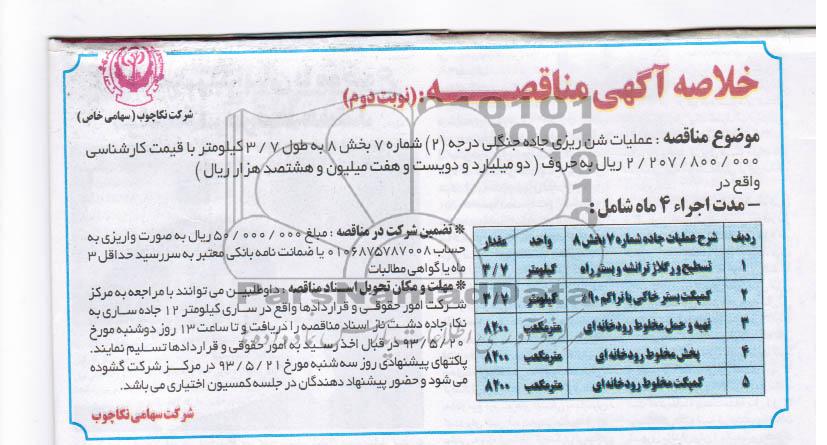 خلاصه آگهی مناقصه: (نوبت دوم)
شرکت نکاچوب (سهامی خاص)
موضوع مناقصه : عملیات شن ریزی جاده جنگلی درجه (۲) شماره ۷ بخش ۸ به طول ۳/۷ کیلومتر با قیمت کارشناسی
۲/۲۰۷/۸۰۰/۰۰۰ ریال به حروف ( دو میلیارد و دویست و هفت میلیون و هشتصد هزار ریال )
واقع در
– مدت اجراء ۴ ماه شامل :
ردیف شرح عملیات جاده شماره ۷ بخش ۸ واحد مقدار
۱ تسطیح و رگلاژ ترانشه و بستر راه کیلومتر ۳/۷
۲ کمپکت بستر خاکی با تراکم ۹۰٪ کیلومتر ۳/۷
۳ تهیه و حمل مخلوط رودخانه ای مترمکعب ۸۲۰۰
۴ پخش مخلوط رودخانه ای مترمکعب ۸۲۰۰
۵ کمپکت مخلوط رودخانه ای مترمکعب ۸۲۰۰
* تضمین شرکت در مناقصه : مبلغ ۵۰/۰۰۰/۰۰۰ ریال به صورت واریزی به
حساب ۰۱۰۶۸۷۵۷۸۷۰۰۸ یا ضمانت نامه بانکی معتبر به سررسید حداقل ۳
ماه یا گواهی مطالبات
* مهلت و مکان تحویل اسناد مناقصه : داوطلبین می توانند با مراجعه به مرکز
شرکت امور حقوقی و قراردادها واقع در ساری کیلومتر ۱۲ جاده ساری به
نکا، جاده دشت ناز اسناد مناقصه را دریافت و تا ساعت ۱۳ روز دوشنبه مورخ
۹۳/۵/۲۰ در قبال اخذ رسید به امور حقوقی و قراردادها تسلیم نمایند.
پاکتهای پیشنهادی روز سه شنبه مورخ ۹۳/۵/۲۱ در مرکز شرکت گشوده
می شود و حضور پیشنهاد دهندگان در جلسه کمسیون اختیاری می باشد.
شرکت سهامی نکاچوب
ParsNamadData